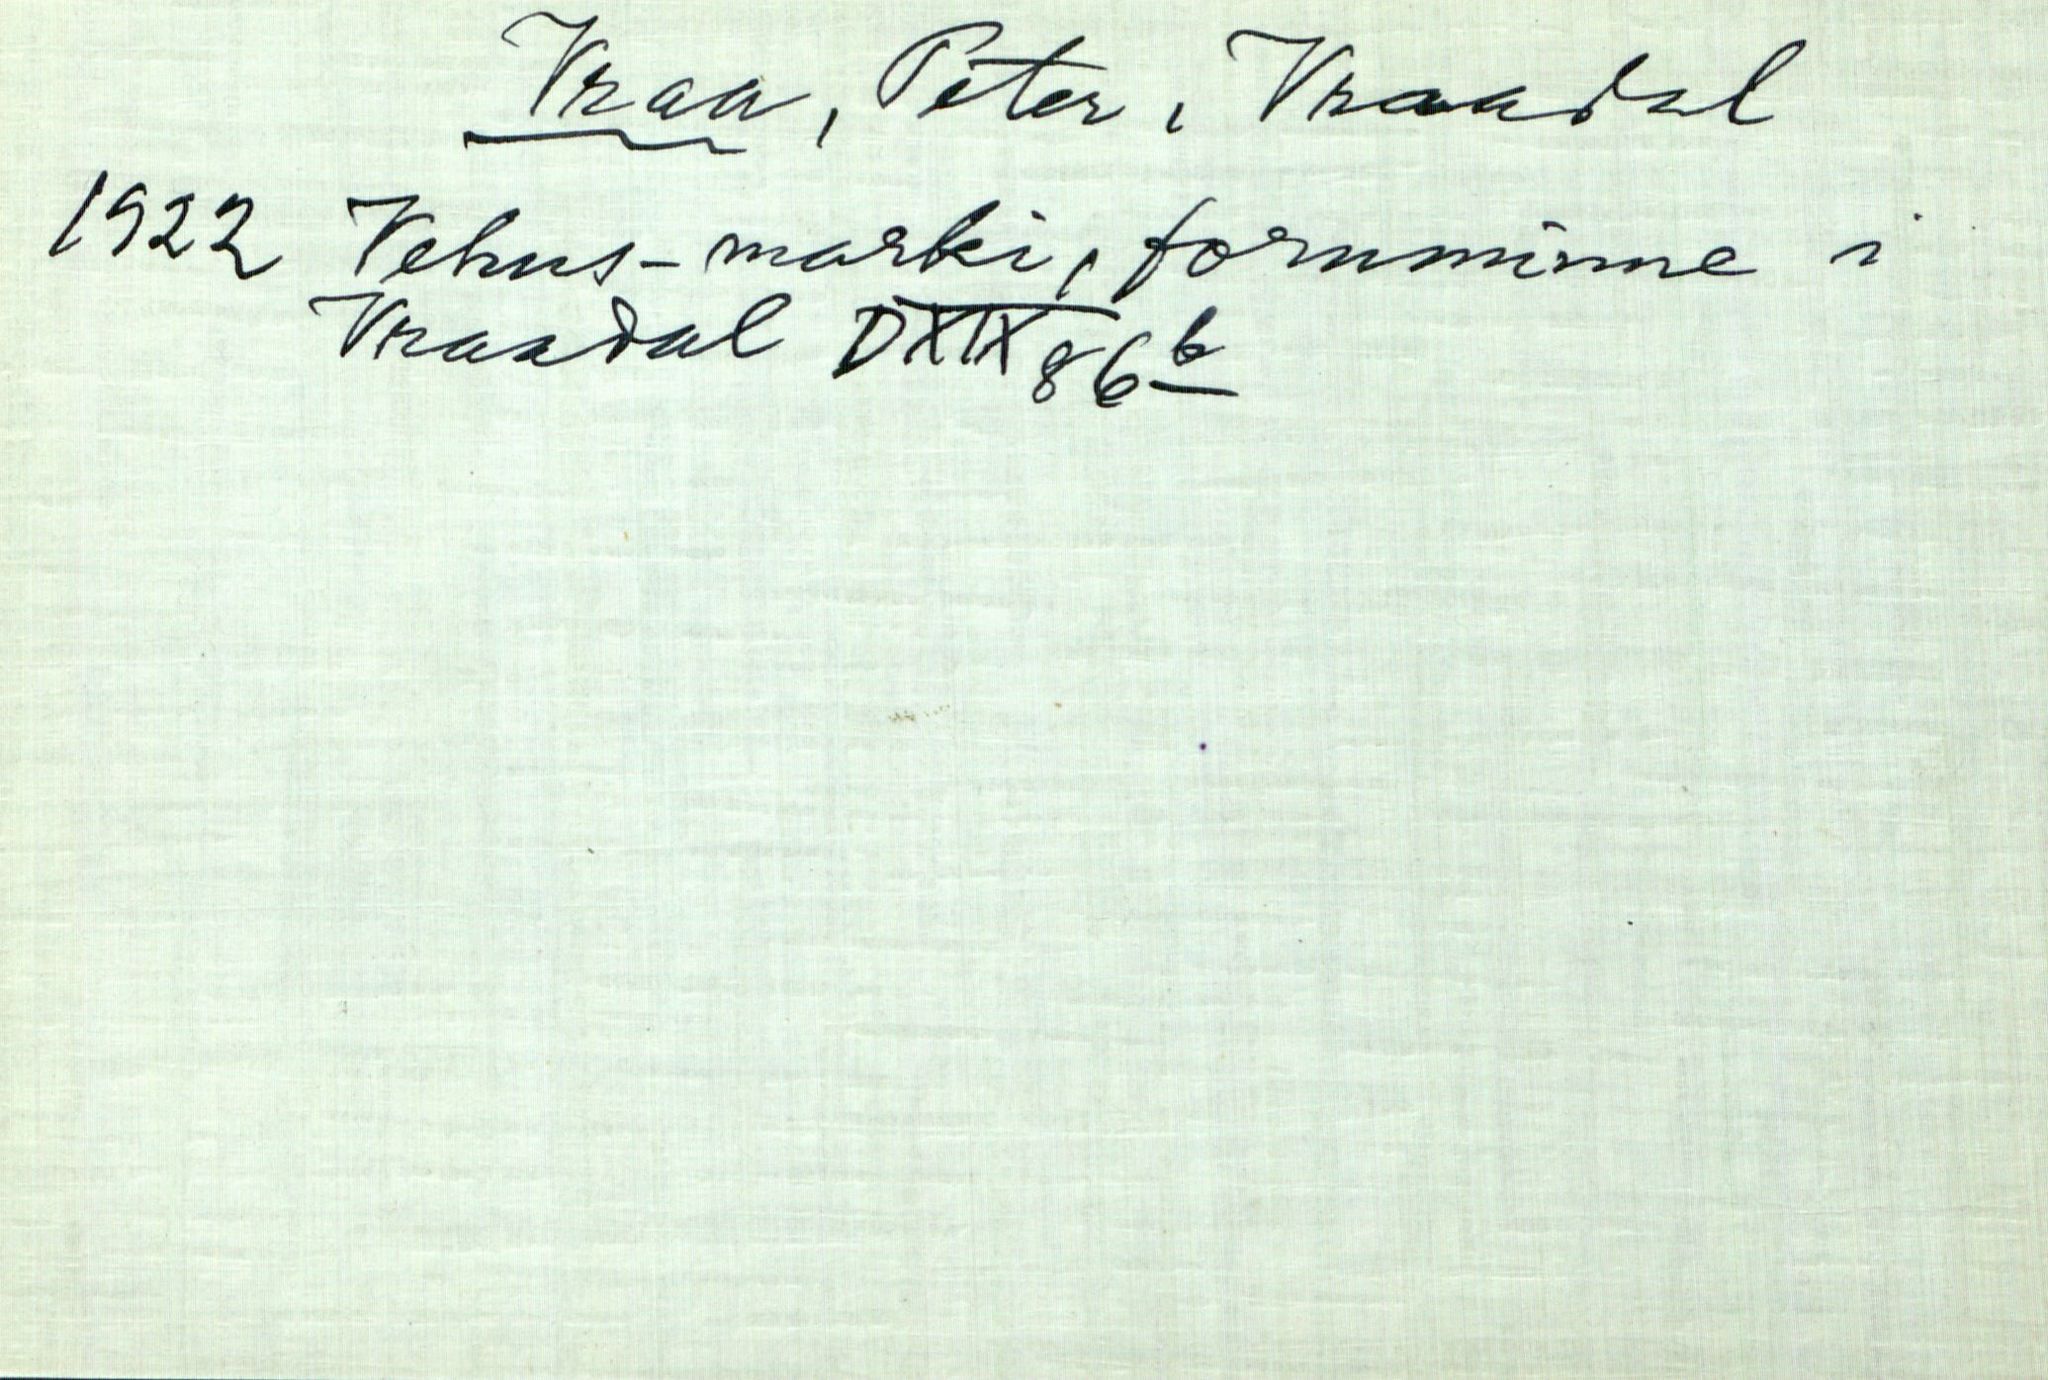 Vraa, Peter, Vraadal
1922 Vehus-marki, fornminne i
Vraadal DXIX 86b